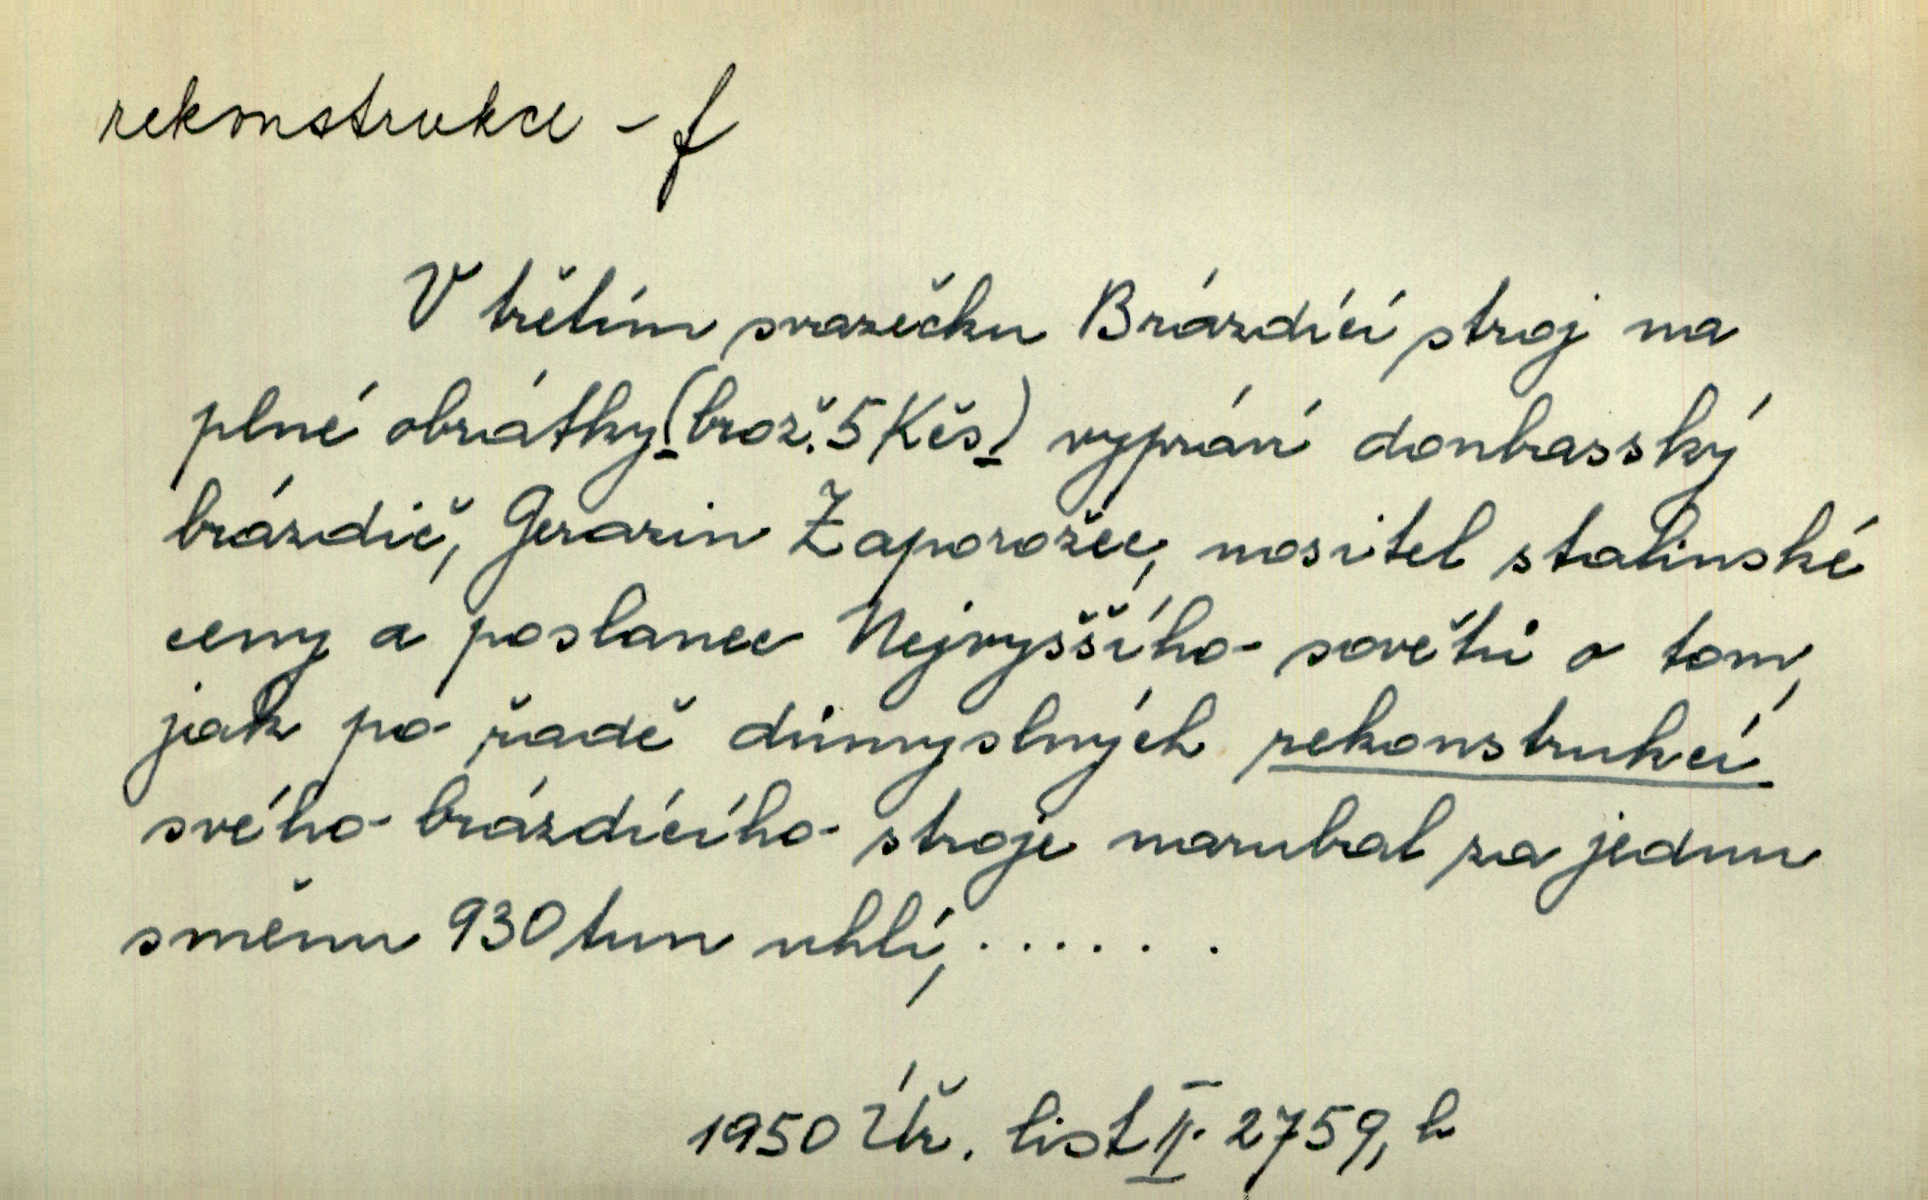 rekonstrukce - f
V třetím svazečku Brázdící stroj na
plné obrátky (brož. 5 Kčs) vypráví donbasský
brázdič, Gerasin Zaporožec, nositel stalinské
ceny a poslanec Nejvyššího sovětu o tom,
jak po řadě důmyslných rekonstrukcí
svého brázdícího stroje narubal za jednu
směnu 930 tun uhlí, . . . . . .
1950 Úř. list II. 2759, b